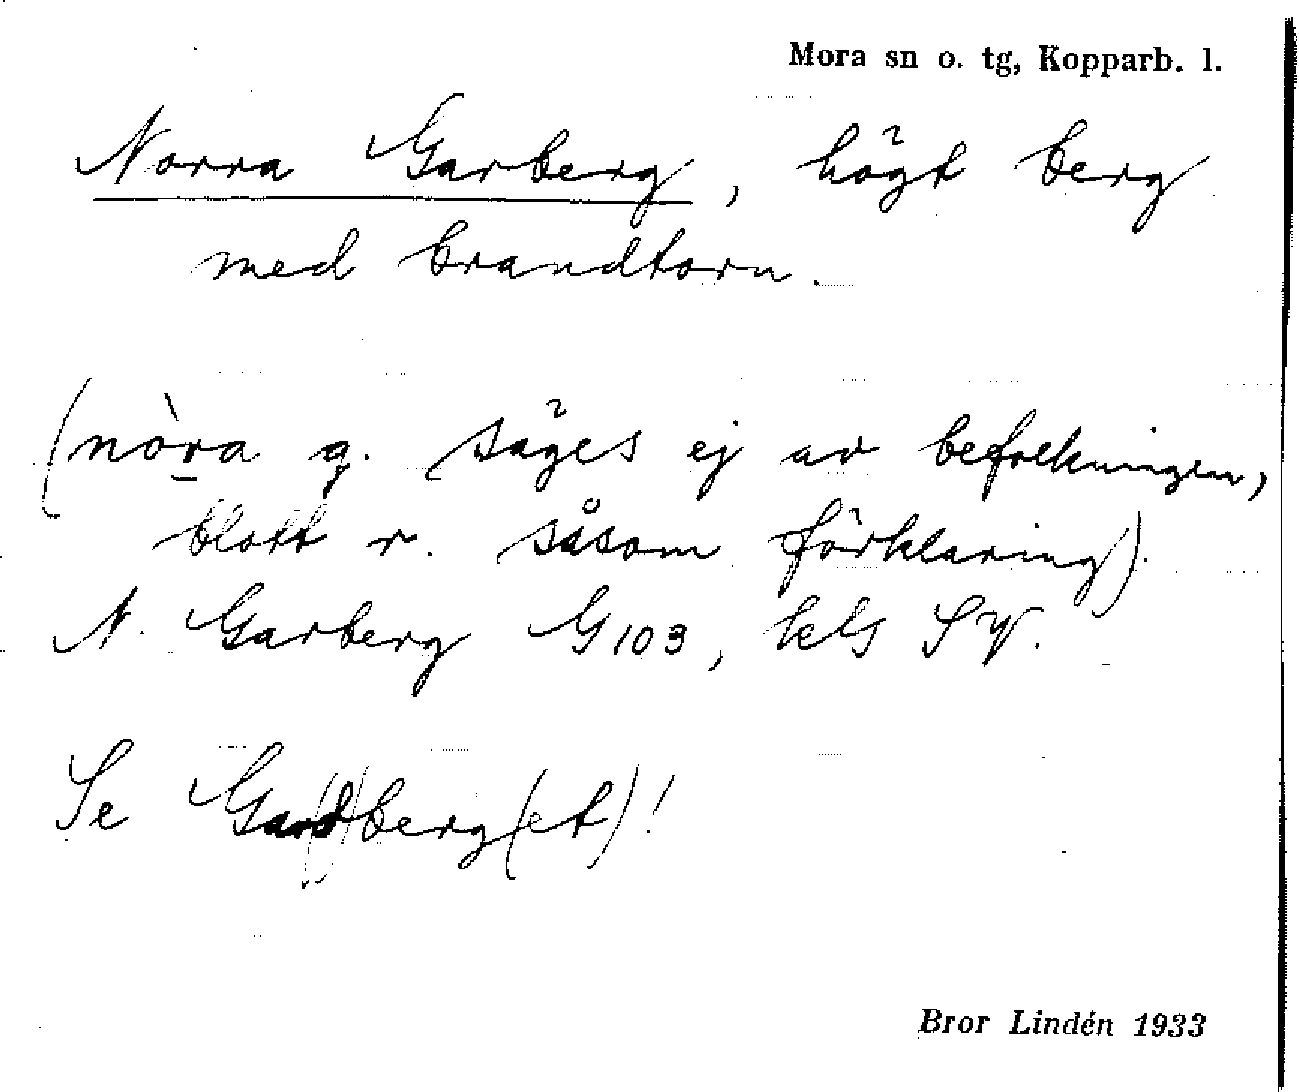 Mora sn o. tg, Kopparb. l.
Norra Garberg, högt berg
med brandtorn.
(nòra g. säges ej av befolkningen,
blott r. såsom förklaring).
N. Garberg G103, kbl SV.
Se Gar(d)berg(et)!
Bror Lindén 1933